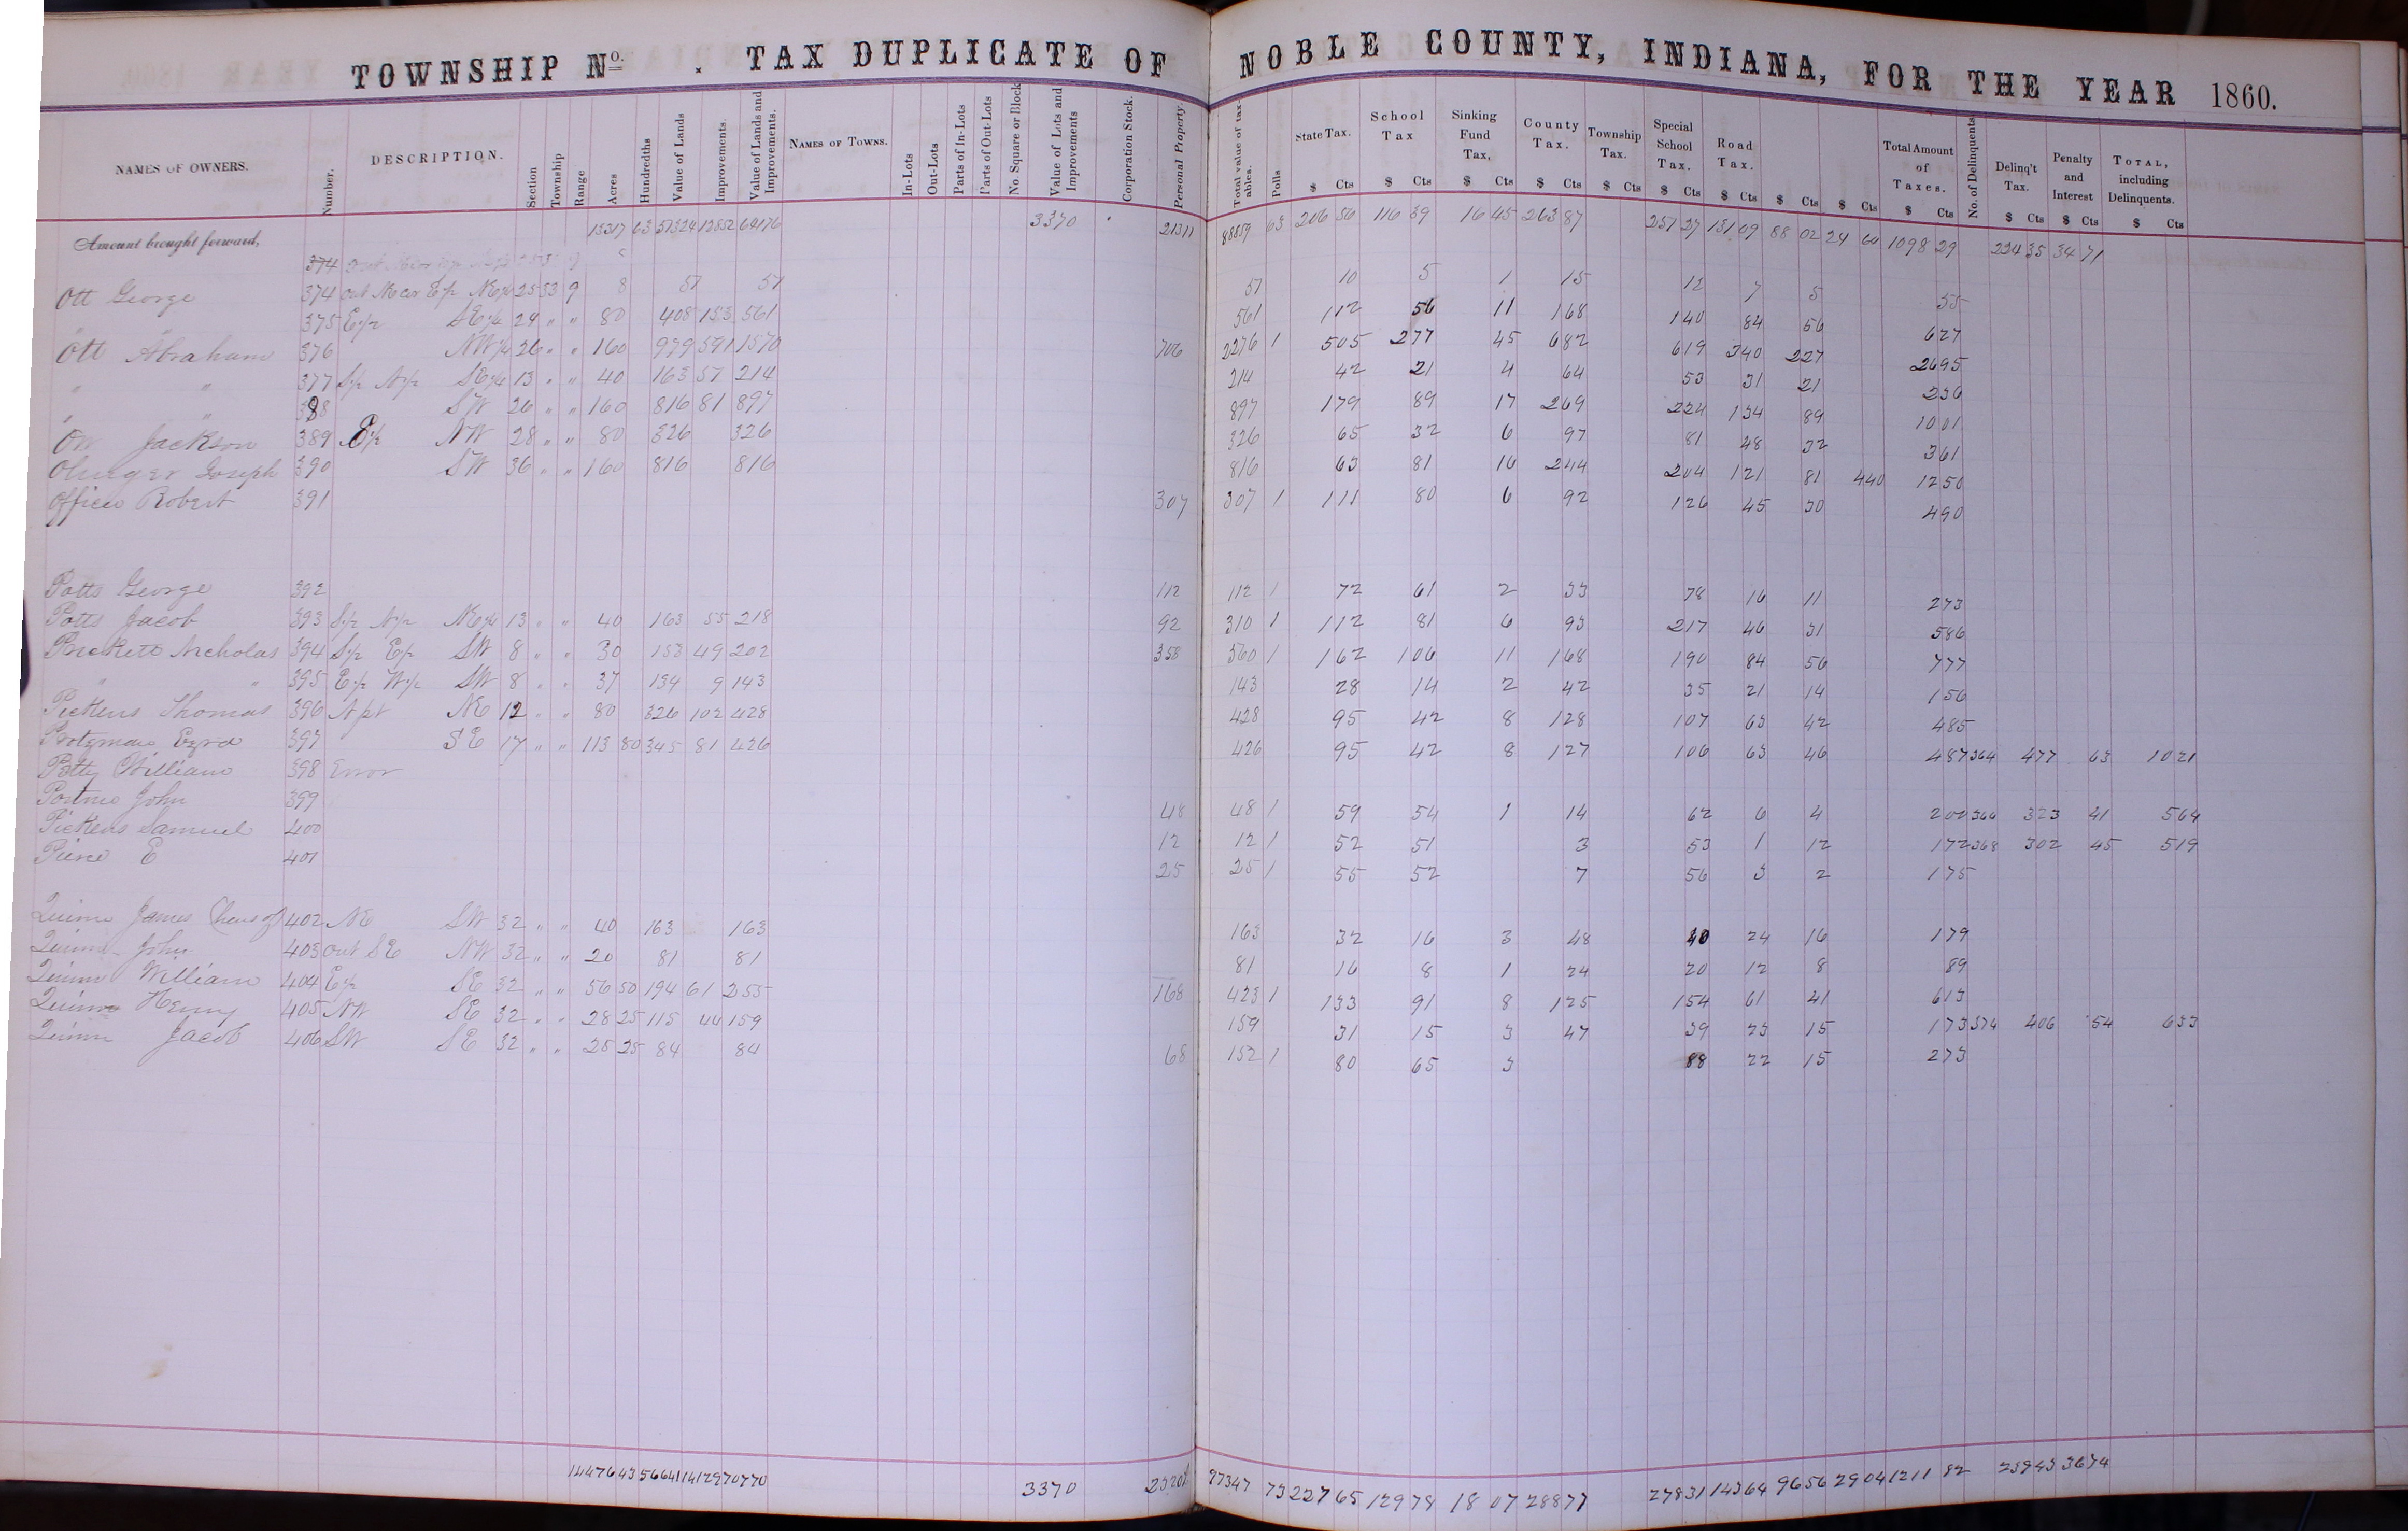 TOWNSHIP No. . TAX DUPLICATE OF NOBLE COUNTY, INDIANA, FOR THE YEAR 1860.
NAMES OF OWNERS. Number. DESCRIPTION. Section Township Range Acres Hundredths Value of Lands Improvements. Value of Lands and Improvements. NAMES OF TOWNS. In-Lots Out-Lots Parts of In-Lots Parts of Out-Lots No Square or Block Value of Lots and Improvements Corporation Stock. Personal Property. Total value of taxables. Polls State Tax. School Tax Sinking Fund Tax, County Tax. Township Tax. Special School Tax. Road Tax. Total Amount of Taxes. No. of Delinquents. Delinq't Tax. Penalty and Interest TOTAL, including Delinquents.
$ Cts $ Cts $ Cts $ Cts $ Cts $ Cts $ Cts $ Cts $ Cts $ Cts $ Cts $ Cts $ Cts
Amount brought forward, 13317 63 57324 12852 3370 21311 88859 63 206 56 116 39 16 45 263 87 257 27 131 09 88 02 24 64 1098 29 224 35 34 71
374
Ott George 374 out Ne cor E½ NE¼ 25 33 9 8 57 57 57 10 5 1 15 12 7 5 55
" " 375 E½ SE¼ 24 " " 80 408 153 561 561 112 56 11 168 140 84 56 627
Ott Abraham 376 NW¼ 26 " " 160 979 591 1570 706 2276 1 505 277 45 682 619 340 227 2695
" " 377 S½ N½ SE¼ 13 " " 40 163 51 214 214 42 21 4 64 53 31 21 236
" " 388 SW 26 " " 160 816 81 897 897 179 89 17 269 224 134 89 1001
Ott Jackson 389 E½ NW 28 " " 80 326 326 326 65 32 6 97 81 48 32 361
Olinger Joseph 390 SW 36 " " 160 816 816 816 63 81 16 244 204 121 81 440 1250
Officer Robert 391 307 307 1 111 80 6 92 126 45 30 490
Potts George 392 112 112 1 72 61 2 33 78 16 11 273
Potts Jacob 393 S½ N½ NE¼ 13 " " 40 163 55 218 92 310 1 112 81 6 93 217 46 31 586
Prickett Nicholas 394 S½ E½ SW 8 " " 30 153 49 202 358 560 1 162 106 11 168 190 84 56 777
" " 395 E½ W½ SW 8 " " 37 134 9 143 143 28 14 2 42 35 21 14 156
Pickens Thomas 396 N pt NE 12 " " 80 326 102 428 428 95 42 8 128 107 63 42 485
Protzman Ezra 397 SE 17 " " 113 80 345 81 426 426 95 42 8 127 106 63 46 487 364 477 63 1021
Potty William 398 Error
John 399 48 48 1 59 54 1 14 62 6 4 200 366 323 41 564
Pickens Samuel 400 12 12 1 52 51 3 53 1 12 172 368 302 45 519
Pierce E 401 25 25 1 55 52 7 56 3 2 175
Quinn James (heirs of) 402 NE SW 32 " " 40 163 163 163 32 16 3 48 40 24 16 179
Quinn John 403 out SE NW 32 " " 20 81 81 81 16 8 1 24 20 12 8 89
Quinn William 404 E½ SE 32 " " 56 50 194 61 255 168 423 1 133 91 8 125 154 61 41 613
Quinn Henry 405 NW SE 32 " " 28 25 115 44 159 159 31 15 3 47 39 23 15 173 374 406 54 633
Quinn Jacob 406 SW SE 32 " " 25 25 84 84 68 152 1 80 65 3 88 22 15 273
14476 43 3370 97347 73 227 65 129 78 18 07 288 77 278 31 143 64 96 56 29 04 1211 82 239 43 36 74